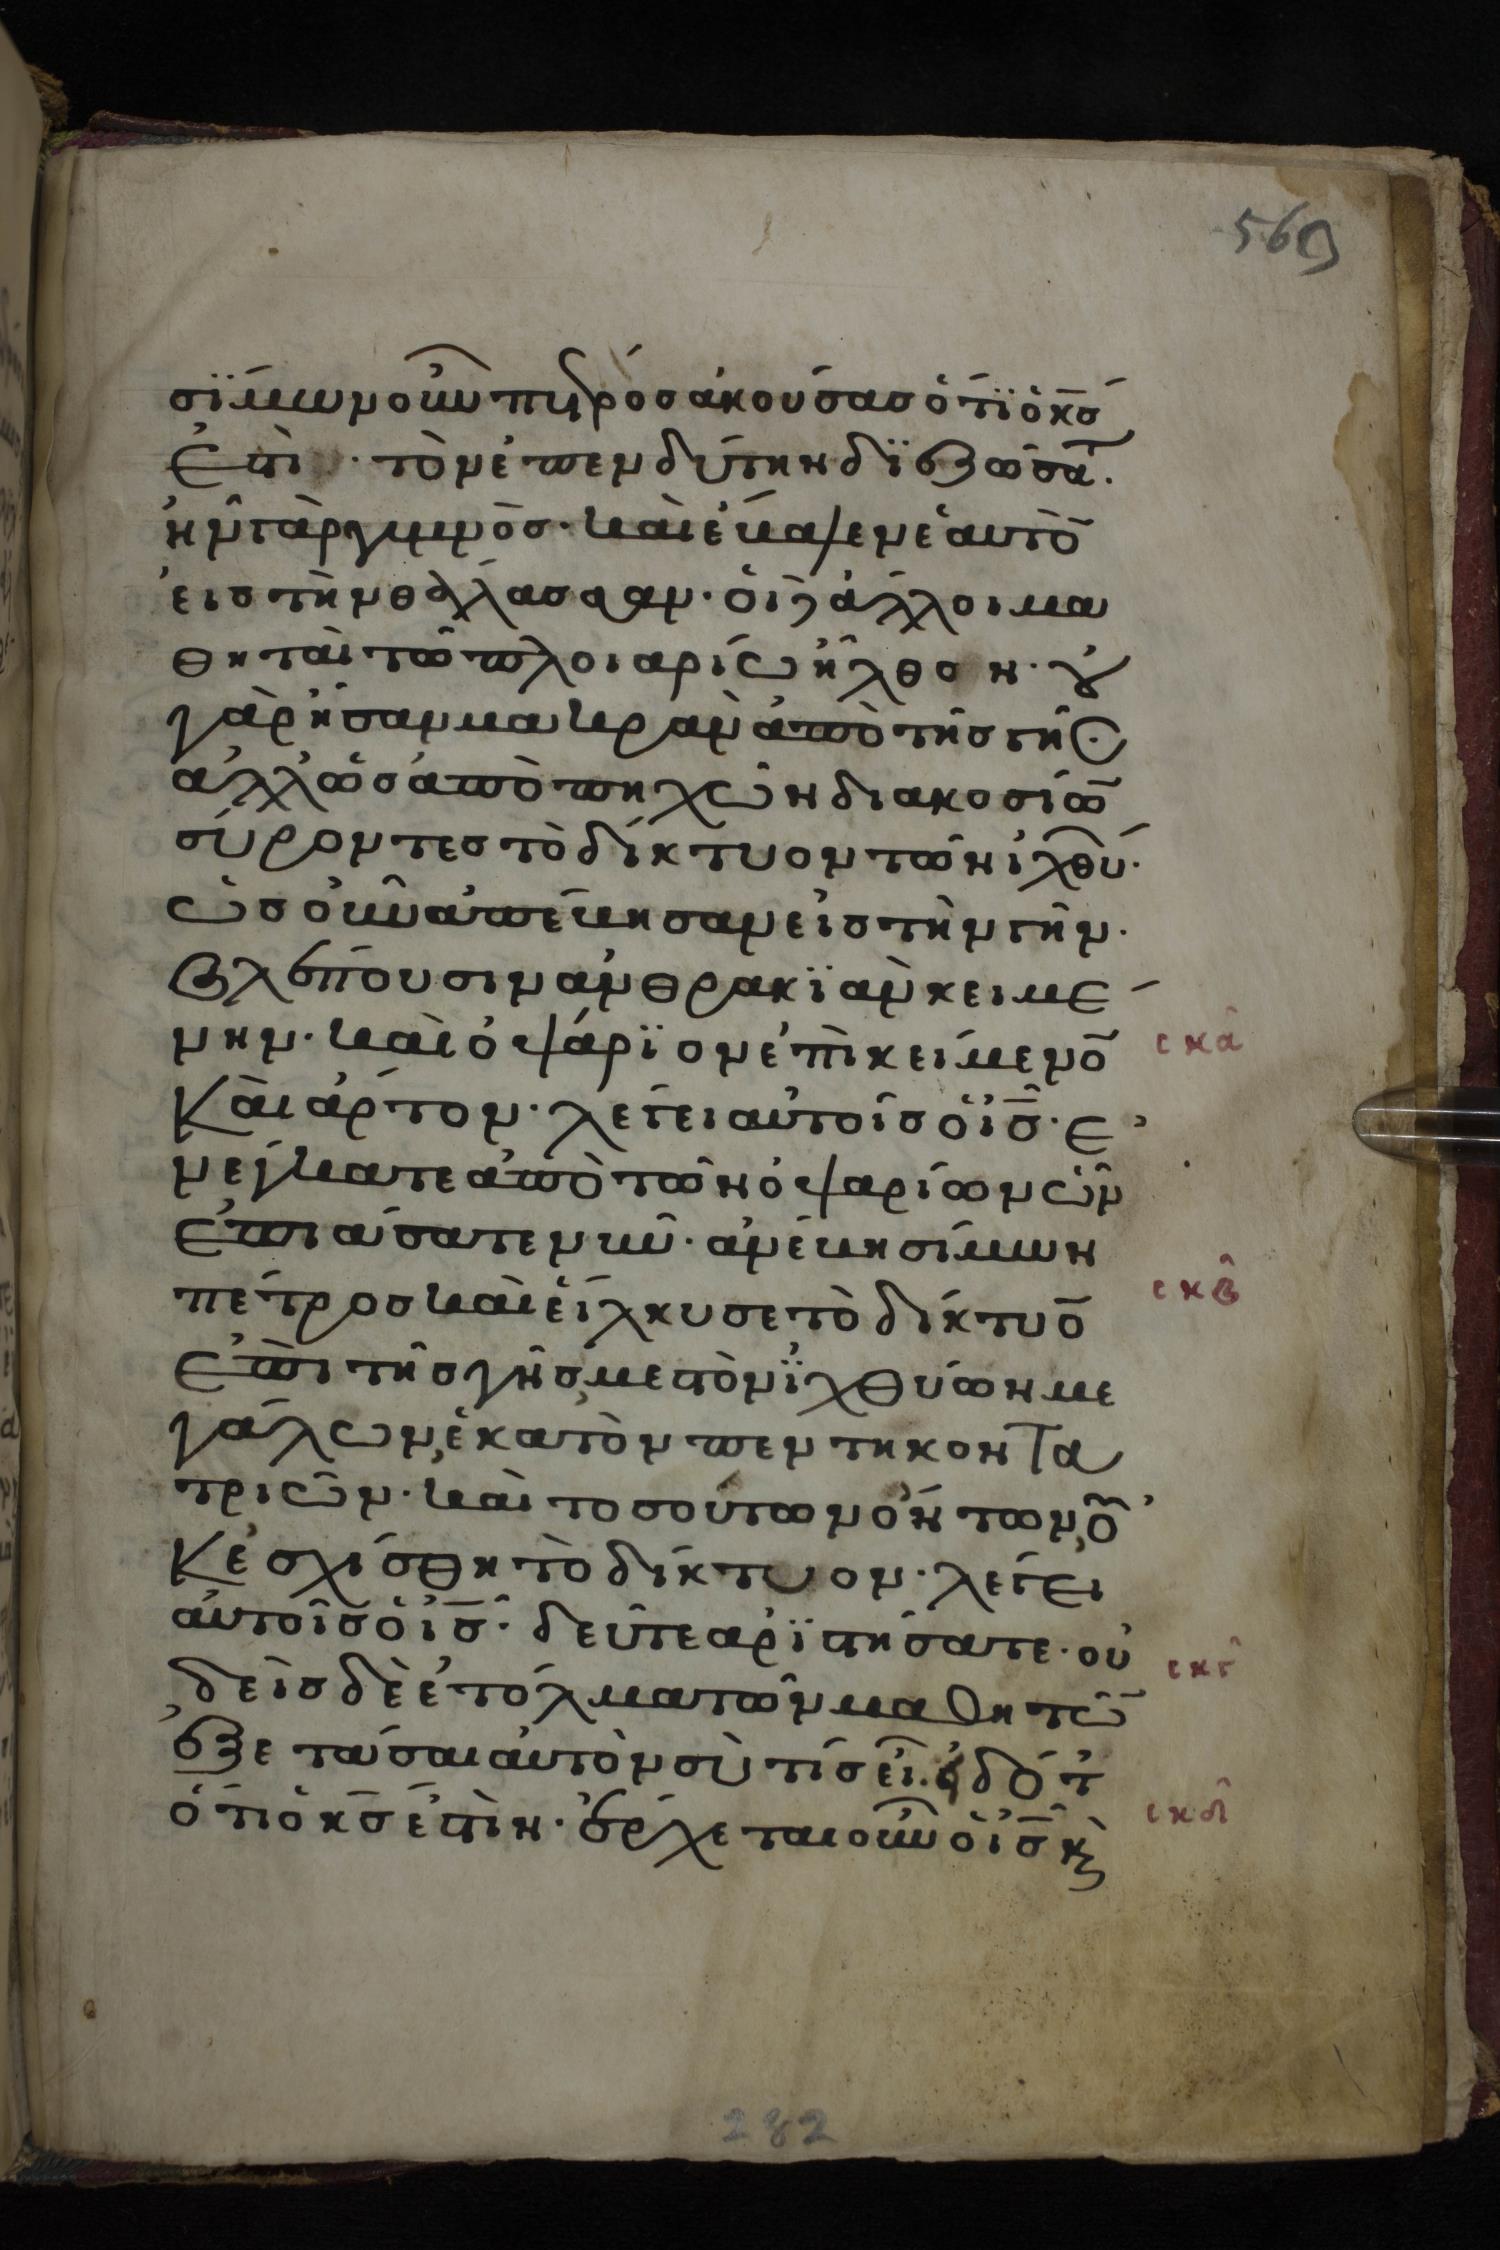 569
σϊμων οὖν πέτρος ἀκούσας ὅτϊ ὁ κ̅ς̅
ἐστι · τὸν ἐπενδύτην δϊεζώσατο.
ἦν γὰρ γυμνὸς · καὶ ἔβαλεν ἑαυτὸ̅
εἰς τὴν θάλασσαν · οἱ δὲ ἄλλοι μα
θηταὶ τῶ πλοιαρίω ἦλθον · οὐ
γὰρ ἦσαν μακρὰν ἀπὸ τῆς γῆς ·
ἀλλ' ὡς ἀπὸ πηχῶν διακοσίω̅
σύροντες τὸ δίκτυον τῶν ἰχθύ·
ὡς οὖν ἀπέβησαν εἰς τὴν γῆν ·
βλέπουσιν ἀνθρακϊὰν κειμέ
νην · καὶ ὀψάρϊον ἐπικείμενο̅
σκα
Καὶ ἄρτον · λέγει αὐτοῖς ὁ ι̅ς̅ · ἐ
νέγκατε ἀπὸ τῶν ὀψαρίων ὧν
ἐπιάσατε νῦν · ἀνέβη σίμων
σκβ
πέτρος καὶ εἵλκυσε τὸ δίκτυο̅
ἐπὶ τῆς γῆς, μεστὸν ϊχθύων με
γάλων, ἑκατὸν πεντηκοντα
τριῶν · καὶ τοσούτων ὄντων, οὐ
Κ ἐσχίσθη τὸ δίκτυον · λέγει
αὐτοῖς ὁ ι̅ς̅ · δεῦτε ἀρϊστήσατε · οὐ
σκγ
δεὶς δὲ ἐτόλμα τῶν μαθητῶ̅
ἐξετάσαι αὐτὸν σὺ τίς εἶ · εἰδότες
ὅτι ὁ κ̅ς̅ ἐστὶν · ἔρχεται οὖν ὁ ι̅ς̅ κ̀
σκδ
282